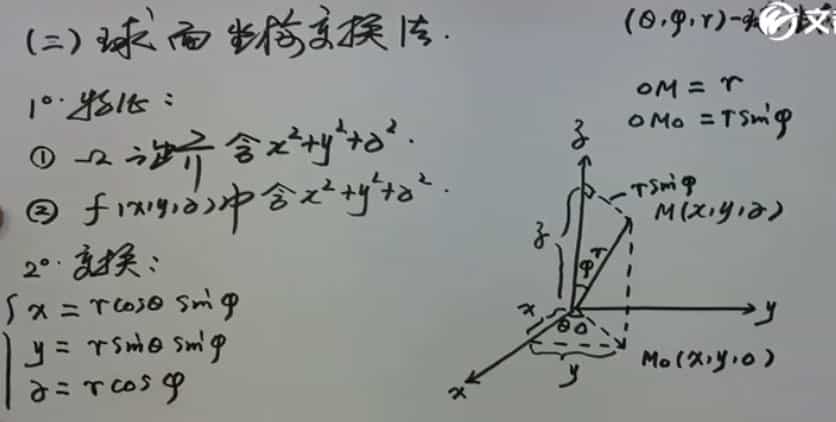 (二) 球面坐标变换法.
(θ,φ,r)-球
1°. 特征:
① Ω 边界含 x²+y²+z².
② f(x,y,z)中含 x²+y²+z².
2°. 变换:
{ x = r cosθ sinφ
y = r sinθ sinφ
z = r cosφ
OM = r
OM₀ = r sinφ
z
r sinφ
M(x,y,z)
z
φ r
x
θ O
y
y
M₀(x,y,0)
x